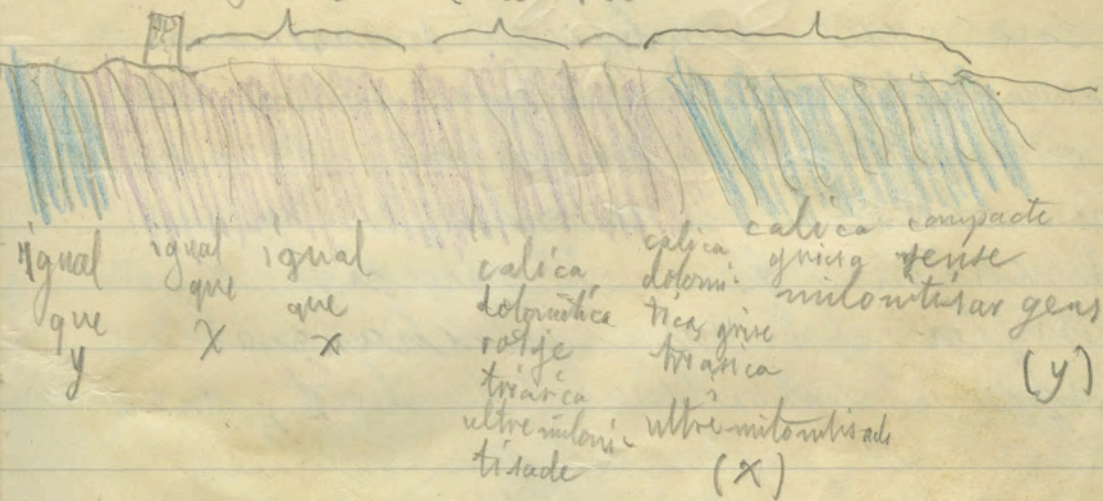 igual
que
y
igual
que
x
igual
que
x
calica
dolomitica
rotje
triasica
ultramiloni-
tisade
calica
dolomi-
ticas grise
triasica
ultramilonitisade
(x)
calica compacte
grisa sense
milonitisar gens
(y)